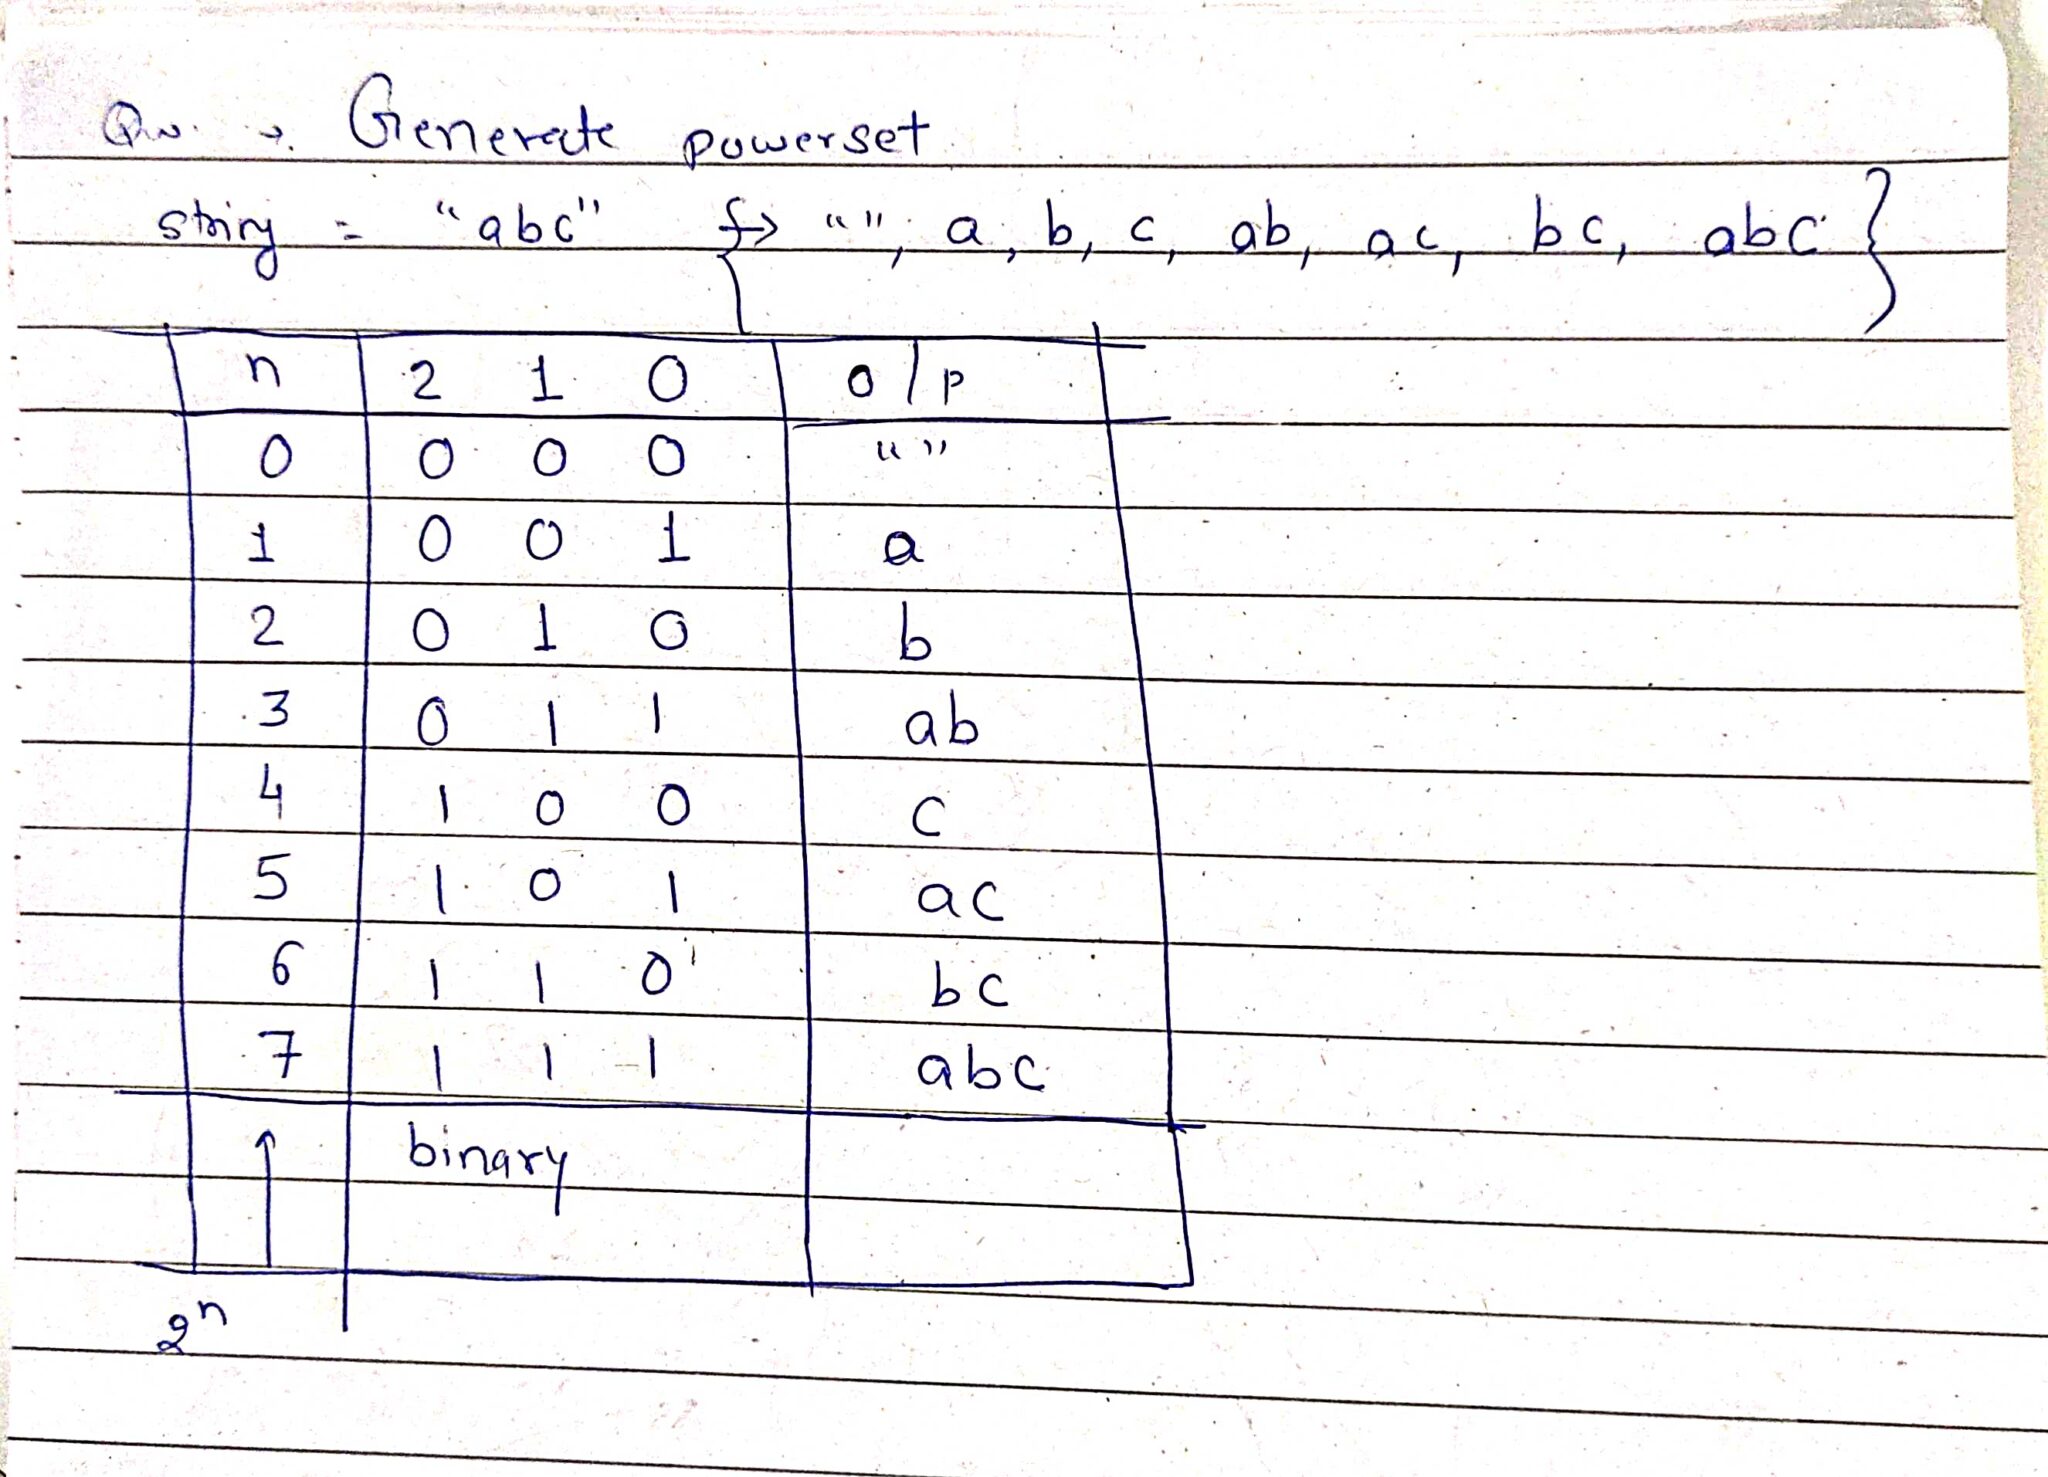 Generate powerset
string = "abc" { → "", a, b, c, ab, ac, bc, abc }
n 2 1 0 o/p
0 0 0 0 " "
1 0 0 1 a
2 0 1 0 b
3 0 1 1 ab
4 1 0 0 c
5 1 0 1 ac
6 1 1 0 bc
7 1 1 1 abc
↑ binary
2ⁿ